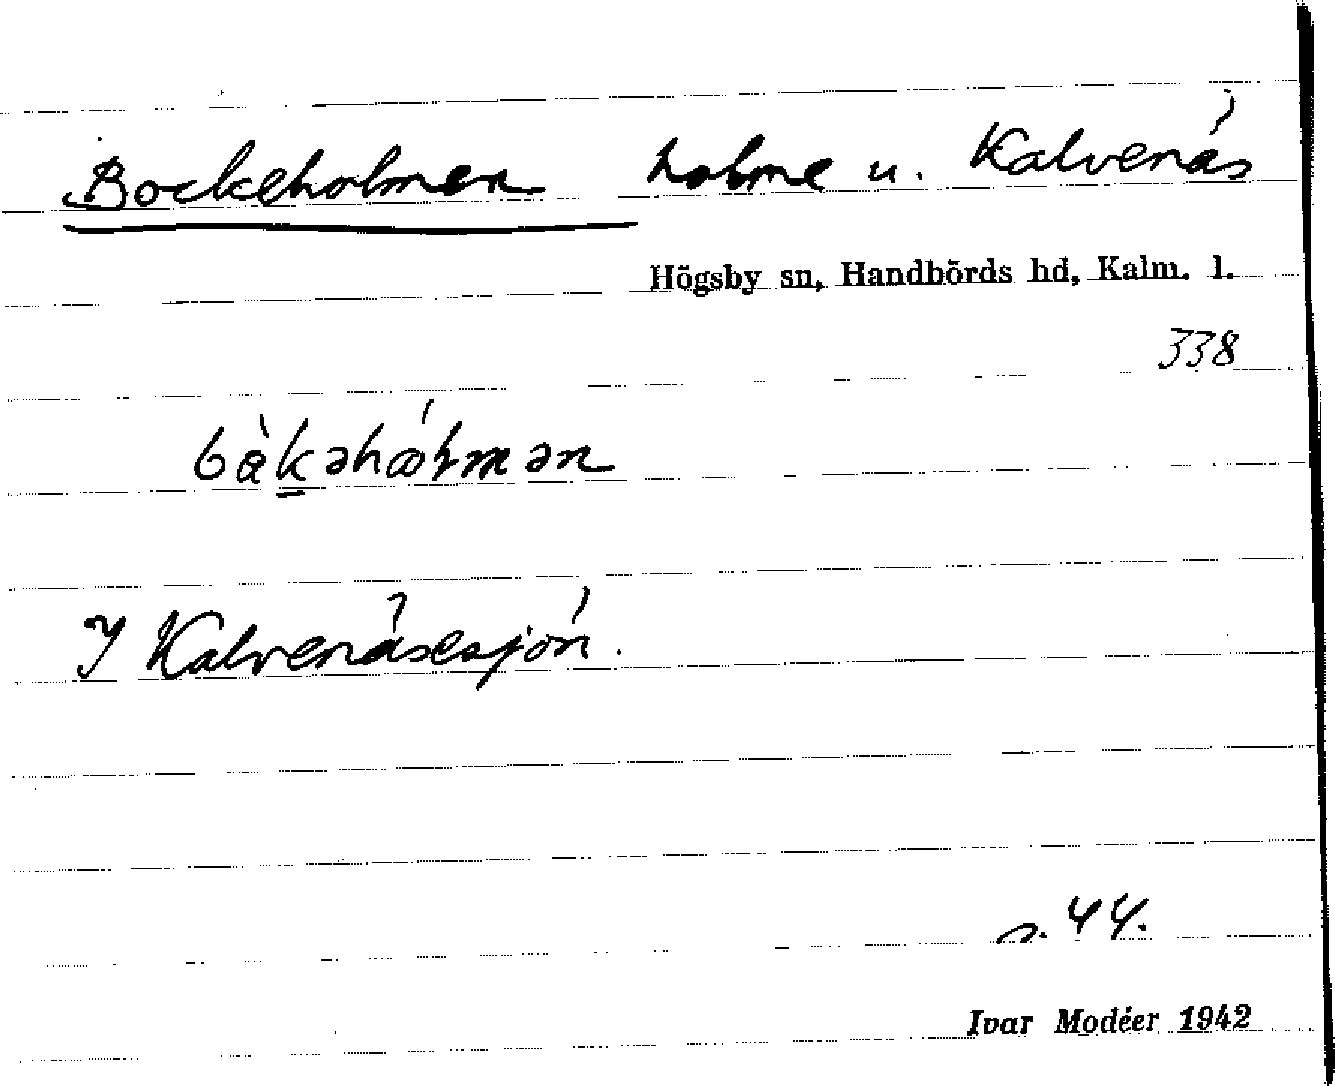 Bockeholmen holme u. Kalvenäs
Högsby sn, Handbörds hd, Kalm. l.
338
I Kalvenäsesjön.
s. 44.
Ivar Modéer 1942